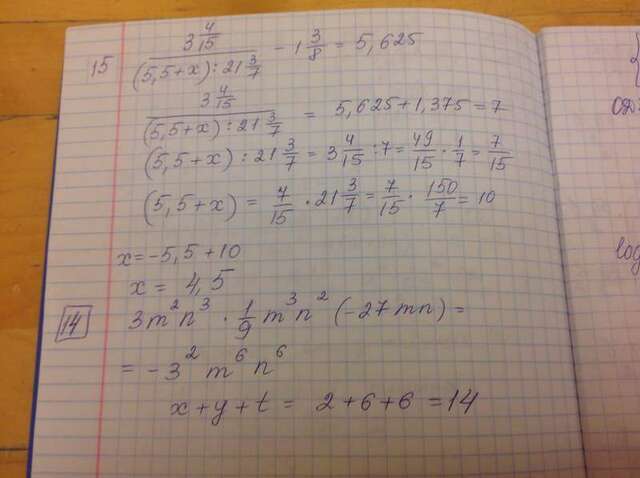 15 3 4/15 / (5,5+x) : 21 3/7 - 1 3/8 = 5,625
3 4/15 / (5,5+x) : 21 3/7 = 5,625 + 1,375 = 7
(5,5+x) : 21 3/7 = 3 4/15 : 7 = 49/15 · 1/7 = 7/15
(5,5+x) = 7/15 · 21 3/7 = 7/15 · 150/7 = 10
x = -5,5 + 10
x = 4,5
14 3m²n³ · 1/9 m³n² (-27mn) =
= -3² m⁶ n⁶
x + y + t = 2+6+6 = 14
log